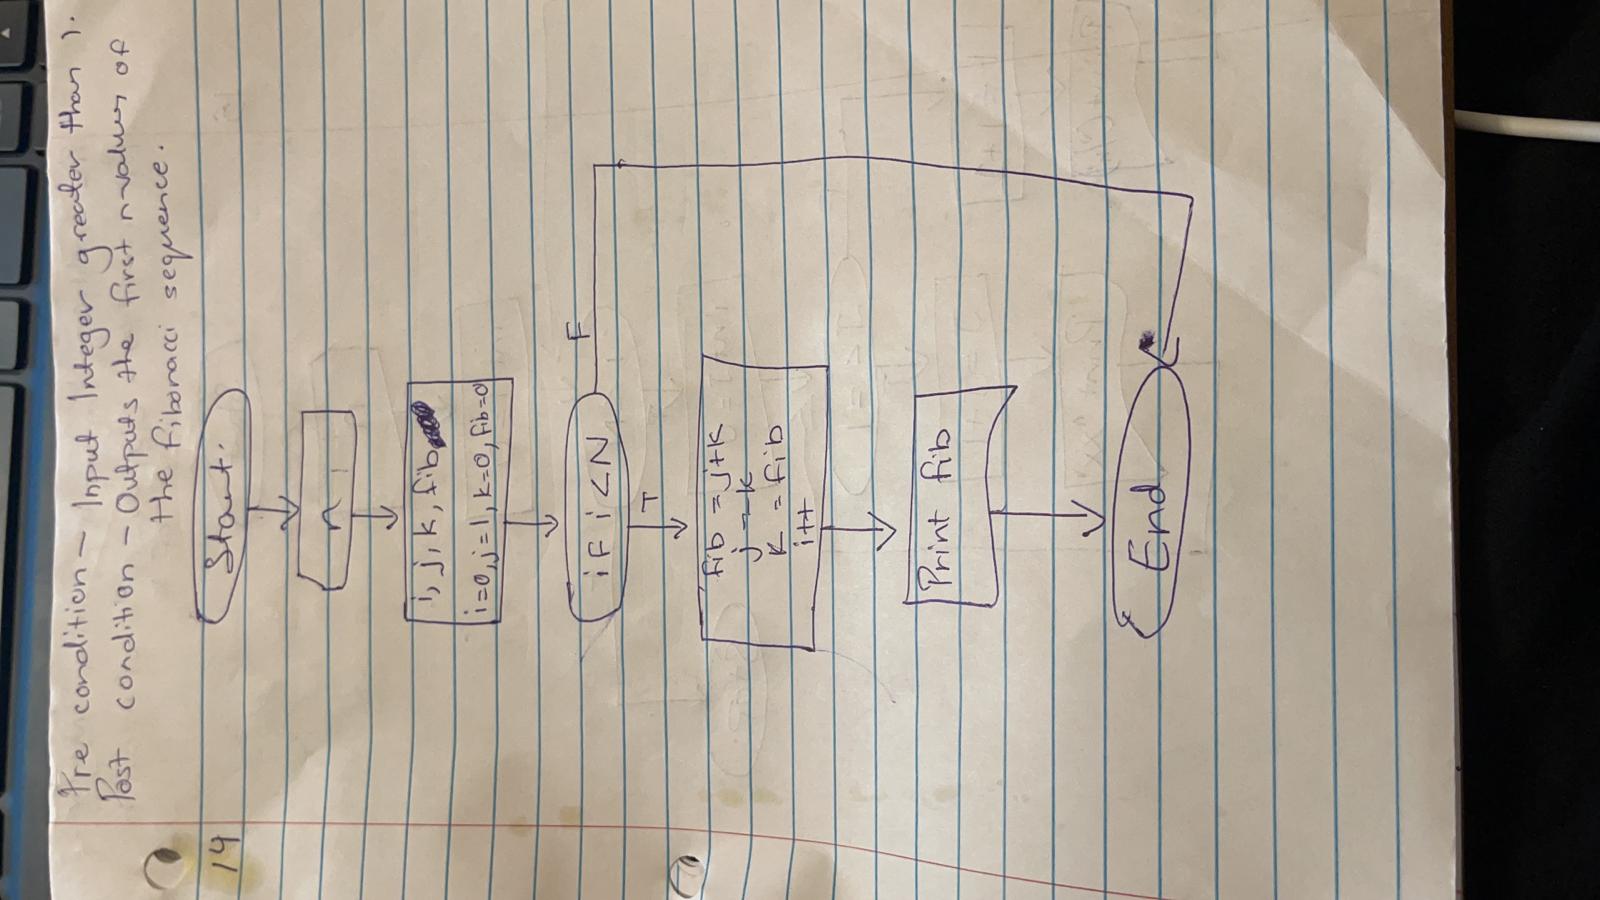 Pre condition - Input Integer greater than 1.
Post condition - Outputs the first n values of
the fibonacci sequence.
14
Start.
n
i, j, k, fib
i=0, j=1, k=0, fib=0
if i < N
F
T
fib = j+k
j = k
k = fib
i++
Print fib
End